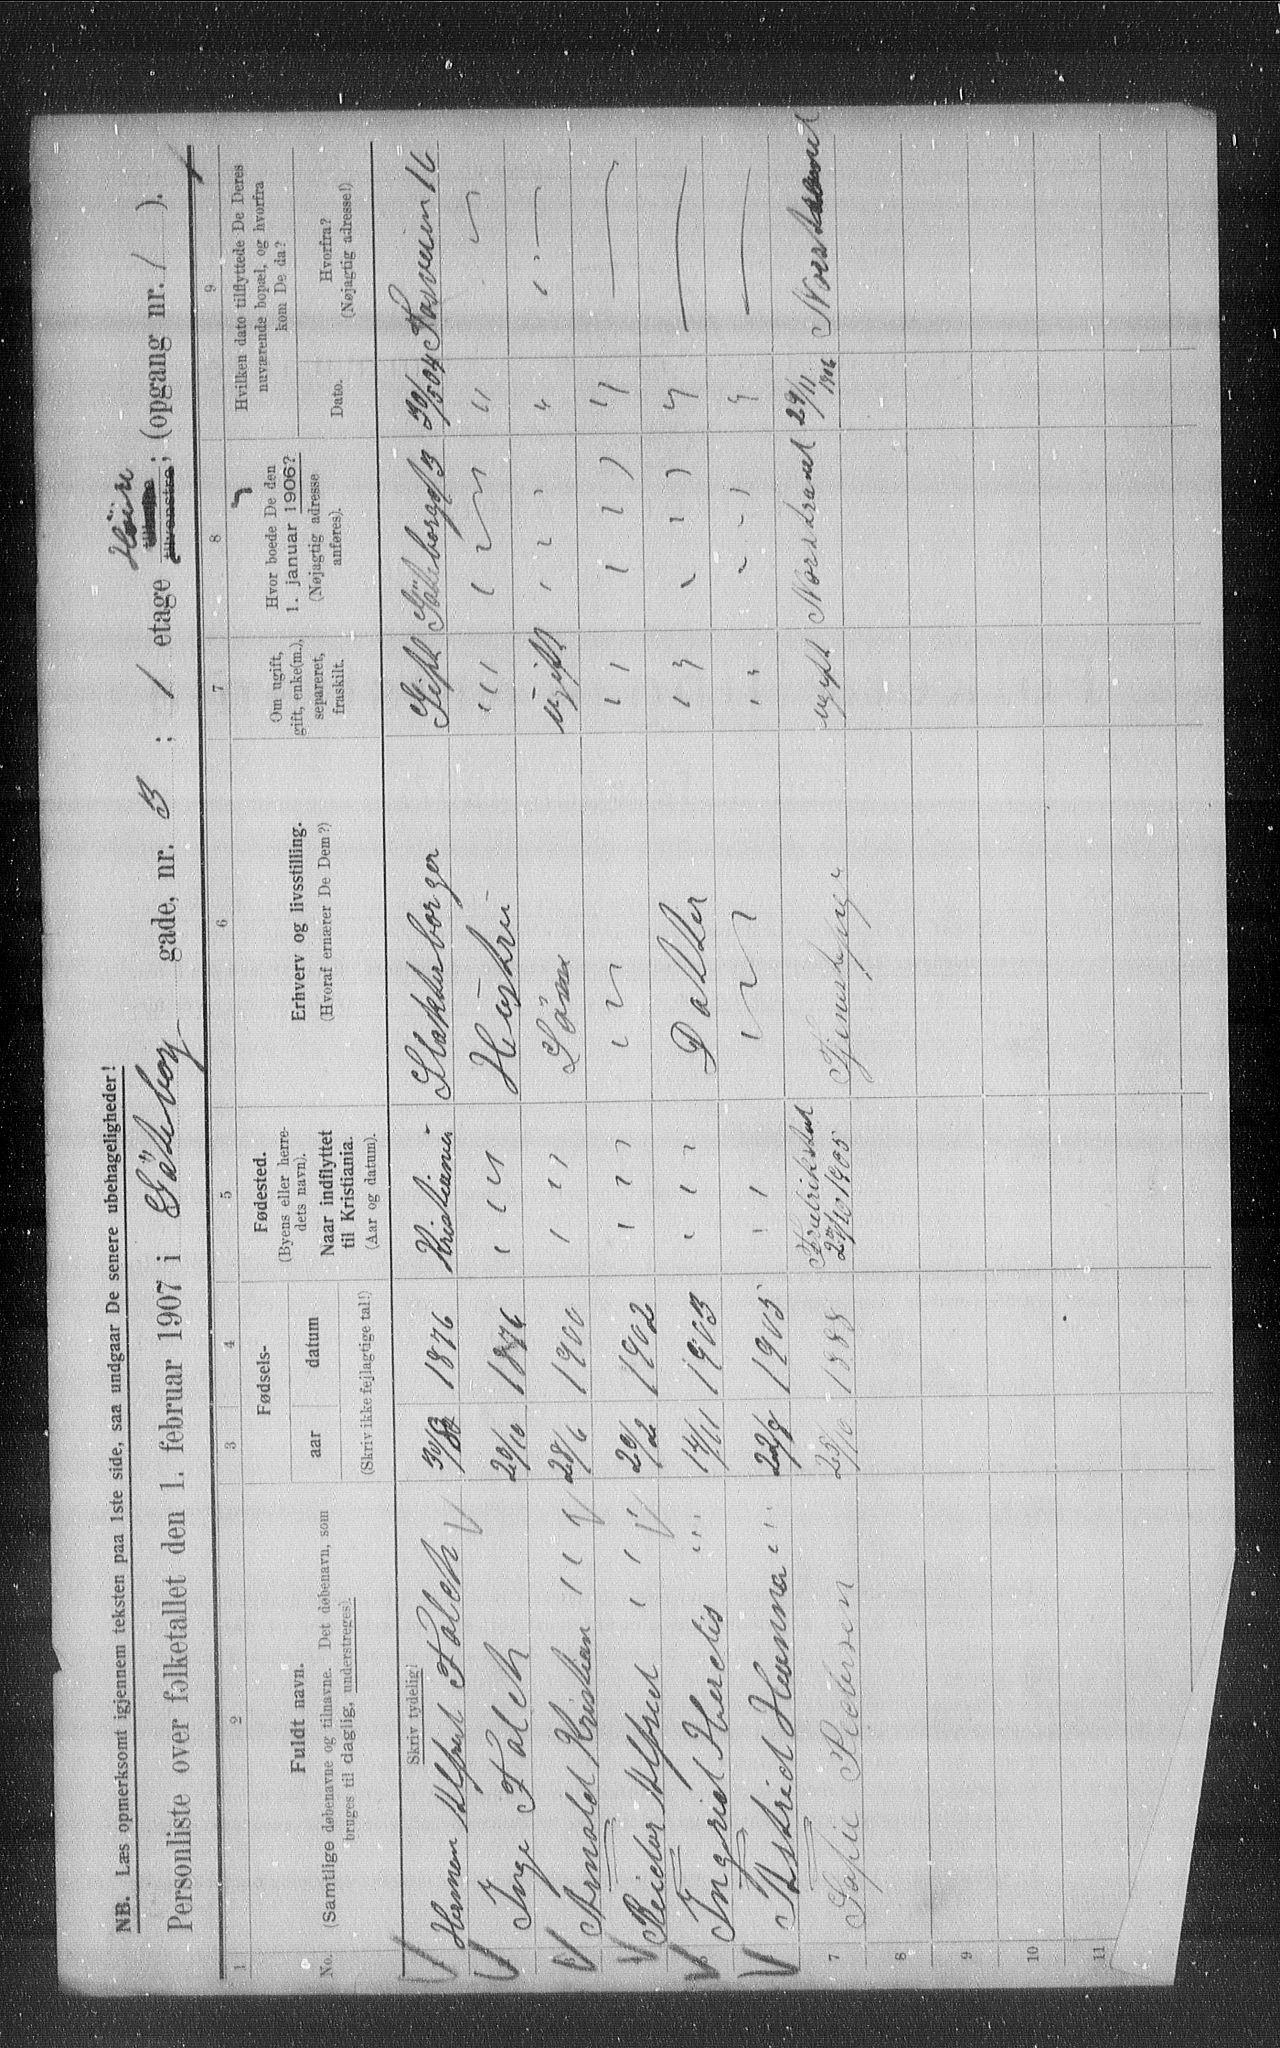 NB. Læs opmerksomt igjennem teksten paa 1ste side, saa undgaar De senere ubehageligheder!
Personliste over folketallet den 1. februar 1907 i Göteborg gade, nr. 3 ; 1 etage Höire tilvenstre; (opgang nr. 1 ).
1 2 3 4 5 6 7 8 9
No. Fuldt navn. (Samtlige døbenavne og tilnavne. Det døbenavn, som bruges til daglig, understreges). Fødsels- aar datum (Skriv ikke fejlagtige tal!) Fødested. (Byens eller herredets navn). Naar indflyttet til Kristiania. (Aar og datum). Erhverv og livsstilling. (Hvoraf ernærer De Dem?) Om ugift, gift, enke(m.), separeret, fraskilt. Hvor boede De den 1. januar 1906? (Nøjagtig adresse anføres). Hvilken dato tilflyttede De Deres nuværende bopæl, og hvorfra kom De da? Dato. Hvorfra? (Nøjagtig adresse!)
Skriv tydelig!
Herman Alfred Falch 30/ 1876 Kristiania Slakterborger Gift Göteborgd 3 30/504 16
Inga Falch 20/10 1876 " " " Hüstrü " " " " " " "
3 Arnold Kristian " " 28/6 1900 " " " Sönn ügift " " " " " "
Reidar Alfred " " 20/2 1902 " " " " " " " " " " "
5 Ingrid Herdis " " " 14/11 1903 " " " Datter " " " " " "
Astrid Hanna " " " 22/9 1905 " " " " " " " " "
7 Sofie Pedersen 1888 Fredrikstad 27/10 1905 Tjenestepige ugift Norstrand 29/11 1906 Norstrand
8
9
10
11